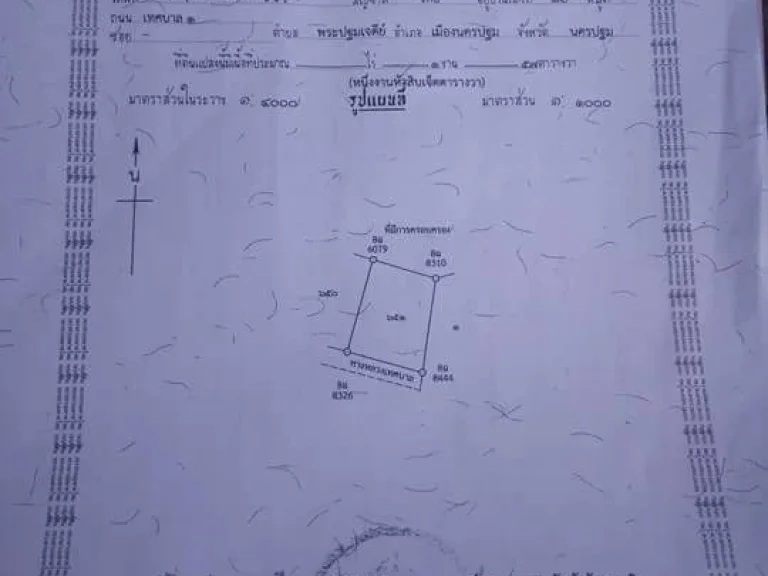 ถนน เทศบาล ๑
ซอย - ตำบล พระปฐมเจดีย์ อำเภอ เมืองนครปฐม จังหวัด นครปฐม
ที่ดินแปลงนี้มีเนื้อที่ประมาณ ไร่ ๑ งาน ๕๗ ตารางวา
(หนึ่งงานห้าสิบเจ็ดตารางวา)
มาตราส่วนในระวาง ๑: ๔๐๐๐ รูปแผนที่ มาตราส่วน ๑: ๑๐๐๐
น
ที่มีการครอบครอง
8ฉ
6079
8ฉ
8310
๖๕๐
๖๕๑
๑
ทางหลวงเทศบาล
8ฉ
8444
8ฉ
8326